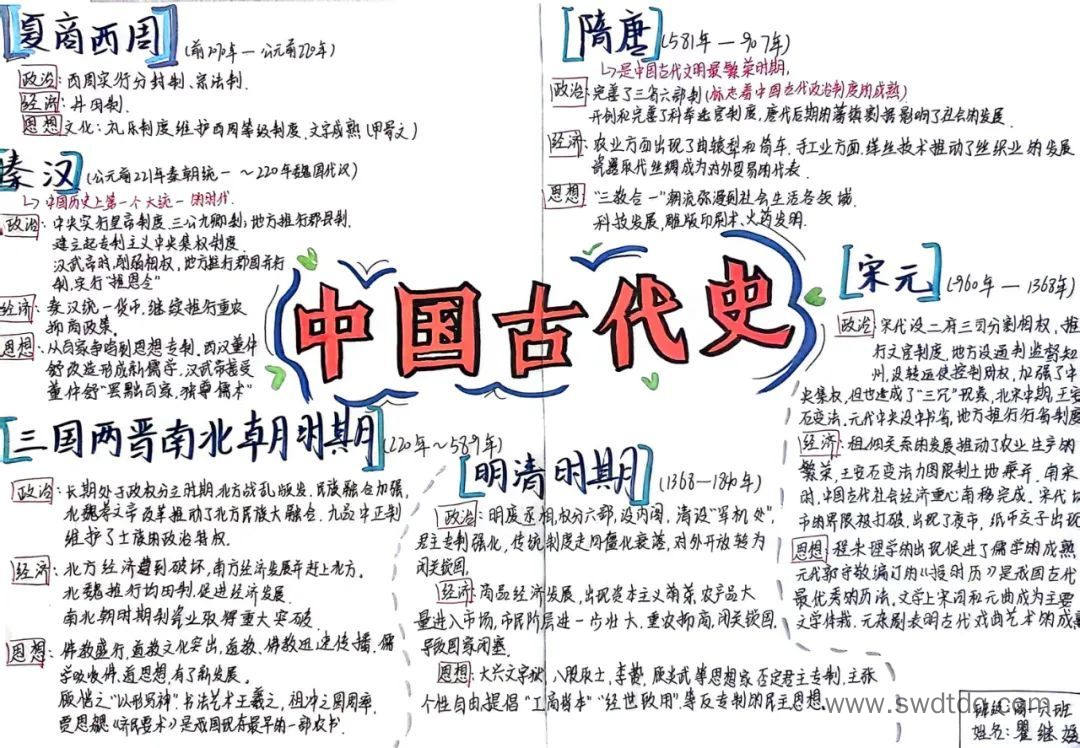 夏商西周 (前2070年—公元前220年)
政治: 西周实行分封制、宗法制.
经济: 井田制.
思想文化: 礼乐制度维护西周等级制度、文字成熟(甲骨文)
秦汉 (公元前221年秦朝统一～220年魏国代汉)
↳中国历史上第一个大统一的时代.
政治: 中央实行皇帝制度、三公九卿制; 地方推行郡县制.
建立起专制主义中央集权制度.
汉武帝时,削弱相权, 地方推行郡国并行
制,实行"推恩令"
经济: 秦汉统一货币、继续推行重农
抑商政策。
思想: 从百家争鸣到思想专制、西汉董仲
舒改造形成新儒学、汉武帝接受
董仲舒"罢黜百家,独尊儒术"
三国两晋南北朝明期 (220年～589年)
政治: 长期处于政权分立时期,北方战乱频发、民族融合加强,
北魏孝文帝改革推动了北方民族大融合. 九品中正制
维护了士族的政治特权.
经济: 北方经济遭到破坏,南方经济发展并赶上北方.
北魏推行均田制,促进经济发展
南北朝时期制瓷业取得重大突破.
思想: 佛教盛行,道教文化突出,道教、佛教迅速传播,儒
学吸收佛、道思想,有了新发展。
顾恺之"以形写神". 书法艺术王羲之, 祖冲之圆周率.
贾思勰《齐民要术》是我国现存最早的一部农书.
中国古代史
隋唐 (581年—907年)
↳是中国古代文明最繁荣时期,
政治: 完善了三省六部制(标志着中国古代政治制度的成熟)
开创和完善了科举选官制度、唐代后期的藩镇割据影响了社会的发展.
经济: 农业方面出现了曲辕犁和筒车、手工业方面,缫丝技术推动了丝织业的发展
瓷器取代丝绸成为对外贸易的代表.
思想: "三教合一"潮流弥漫到社会生活各领域.
科技发展, 雕版印刷术、火药发明.
宋元 (960年—1368年)
政治: 宋代设二府三司分割相权、推
行文官制度、地方设通判监督知
州,设转运使控制财权,加强了中
央集权,但也造成了"三冗"现象、北宋中期,王安
石变法、元代中央设中书省,地方推行行省制度
经济: 租佃关系的发展推动了农业生产的
繁荣、王安石变法力图限制土地兼并、南宋
时,中国古代社会经济重心南移完成、宋代坊
市的界限被打破、出现了夜市、纸币交子出现
思想: 程朱理学的出现促进了儒学的成熟
元代郭守敬编订的《授时历》是我国古代
最优秀的历法、文学上宋词和元曲成为主要
文学体裁、元杂剧表明古代戏曲艺术的成熟
明清明期 (1368—1840年)
政治: 明废丞相,权分六部,设内阁、清设"军机处",
君主专制强化、传统制度走向僵化衰落、对外开放转为
闭关锁国.
经济: 商品经济发展,出现资本主义萌芽、农产品大
量进入市场,市民阶层进一步壮大、重农抑商,闭关锁国,
导致国家闭塞.
思想: 大兴文字狱、八股取士、李贽、顾炎武等思想家否定君主专制、主张
个性自由提倡"工商皆本""经世致用"等反专制的民主思想.
www.swdtdq.com
班级:高一六班
姓名: 瞿继